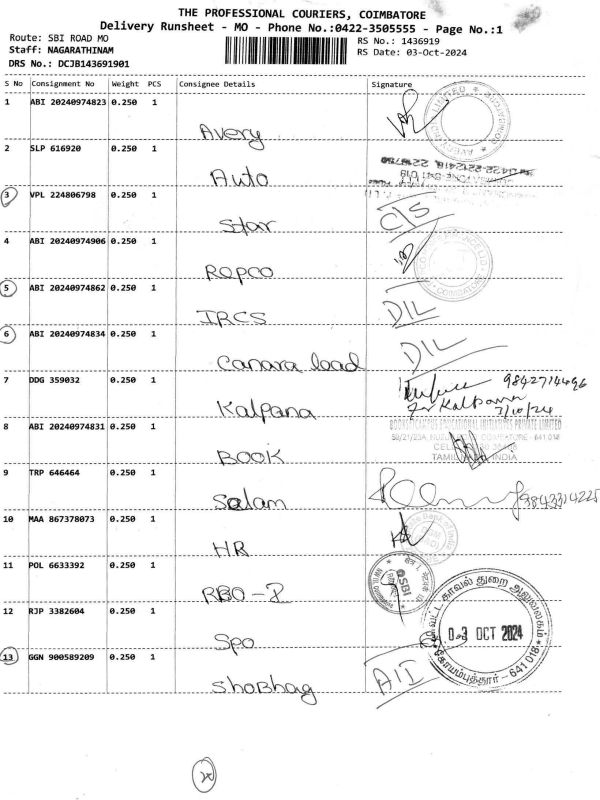 THE PROFESSIONAL COURIERS, COIMBATORE
Delivery Runsheet - MO - Phone No.:0422-3505555 - Page No.:1
Route: SBI ROAD MO
RS No.: 1436919
Staff: NAGARATHINAM
RS Date: 03-Oct-2024
DRS No.: DCJB143691901
S No Consignment No Weight PCS Consignee Details Signature
1 ABI 20240974823 0.250 1
Avery
2 SLP 616920 0.250 1
Auto
3 VPL 224806798 0.250 1
Star C/S
4 ABI 20240974906 0.250 1
Repco
5 ABI 20240974862 0.250 1
IRCS D/L
6 ABI 20240974834 0.250 1
Canara load D/L
7 DDG 359032 0.250 1
Kalpana
9842714496
For Kalpana
3/10/24
8 ABI 20240974831 0.250 1
BOOK
EDUCATIONAL INITIATIVES PRIVATE LIMITED
COIMBATORE - 641 018
INDIA
9 TRP 646464 0.250 1
Salam
10 MAA 867378073 0.250 1
HR
11 POL 6633392 0.250 1
RBO-I
SBI
12 RJP 3382604 0.250 1
Spo
மாவட்ட காவல் துறை அலுவலகம்
03 OCT 2024
கோயம்புத்தூர் - 641 018
13 GGN 900589209 0.250 1
Shobhag